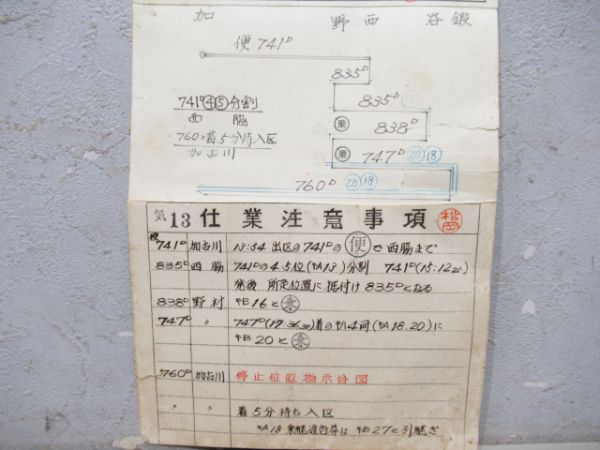 加 野 西 谷 鍛
便 741D
835D
741D ④⑤ 分割
西脇
835D
838D
760D着5分待入区
加古川
747D ⑳⑱
760D ⑳⑱
気13 仕業注意事項 松岡
741D 加古川 13:54 出区の741Dの便で西脇まで
835D 西脇 741Dの4.5位(サA18)分割 741D(15:12
発後 所定位置に据付け 835Dとなる
838D 野村 サB16と乗
747D 〃 747D 着の 4両 (サA18.20)に
サB20と乗
760D 加古川 停止位置指示合図
〃 〃 着5分待ち入区
サA18 サB27と引継ぎ